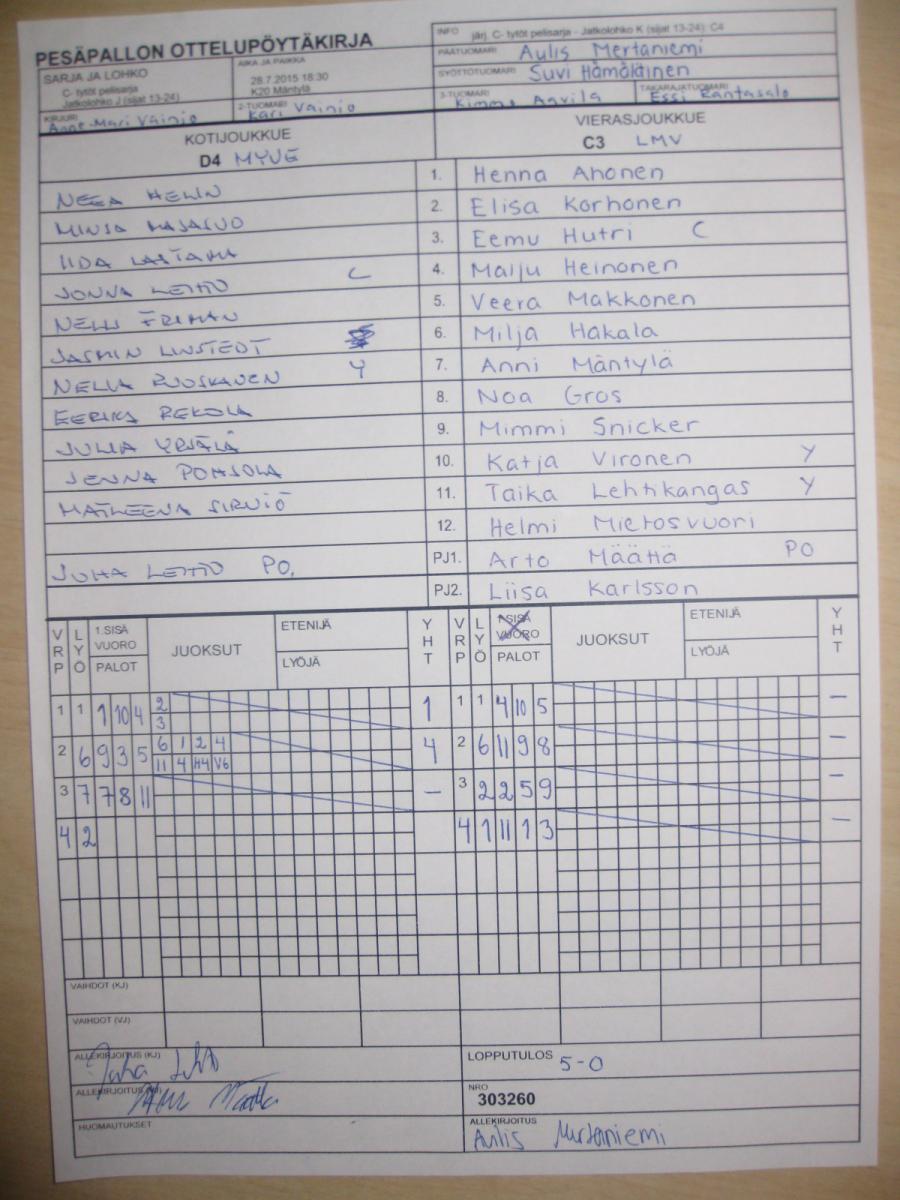 PESÄPALLON OTTELUPÖYTÄKIRJA
INFO järj. C- tytöt pelisarja - Jatkolohko K (sijat 13-24): C4
PÄÄTUOMARI Aulis Mertaniemi
SARJA JA LOHKO
C- tytöt pelisarja
Jatkolohko J (sijat 13-24)
AIKA JA PAIKKA
28.7.2015 18:30
K20 Mäntylä
SYÖTTÖTUOMARI Suvi Hämäläinen
KIRJURI Anne-Mari Vainio
2-TUOMARI Kari Vainio
3-TUOMARI Kimmo Anvila
TAKARAJATUOMARI Essi Rantasalo
KOTIJOUKKUE
D4 MYVE
VIERASJOUKKUE
C3 LMV
NEEA HELIN 1. Henna Ahonen
MINSA MAJASUO 2. Elisa Korhonen
IIDA 3. Eemu Hutri C
JONNA LEHTO C 4. Maiju Heinonen
NELLI FRIMAN 5. Veera Makkonen
JASMIN LINSTEDT 6. Milja Hakala
NELLA RUOSKANEN Y 7. Anni Mäntylä
EERIKA REKOLA 8. Noa Gros
JULIA YRJÄLÄ 9. Mimmi Snicker
JENNA POHJOLA 10. Katja Vironen Y
MATLEENA SIRNIÖ 11. Taika Lehtikangas Y
12. Helmi Mietosvuori
JUHA LEHTO PO. PJ1. Arto Määttä PO
PJ2. Liisa Karlsson
VRP LYÖ 1.SISÄ VUORO PALOT JUOKSUT ETENIJÄ LYÖJÄ YHT VRP LYÖ 1.SISÄ VUORO PALOT JUOKSUT ETENIJÄ LYÖJÄ YHT
1 1 1 10 4 2 3 1 1 1 4 10 5 –
2 6 9 3 5 6 1 2 4 4 2 6 11 9 8 –
11 4 H4 V6
3 7 7 8 11 – 3 2 2 5 9 –
4 2 4 1 11 1 3 –
VAIHDOT (KJ)
VAIHDOT (VJ)
ALLEKIRJOITUS (KJ) Juha Lehto
LOPPUTULOS 5-0
ALLEKIRJOITUS (VJ) Arto Määttä
NRO
303260
HUOMAUTUKSET
ALLEKIRJOITUS
Aulis Mertaniemi